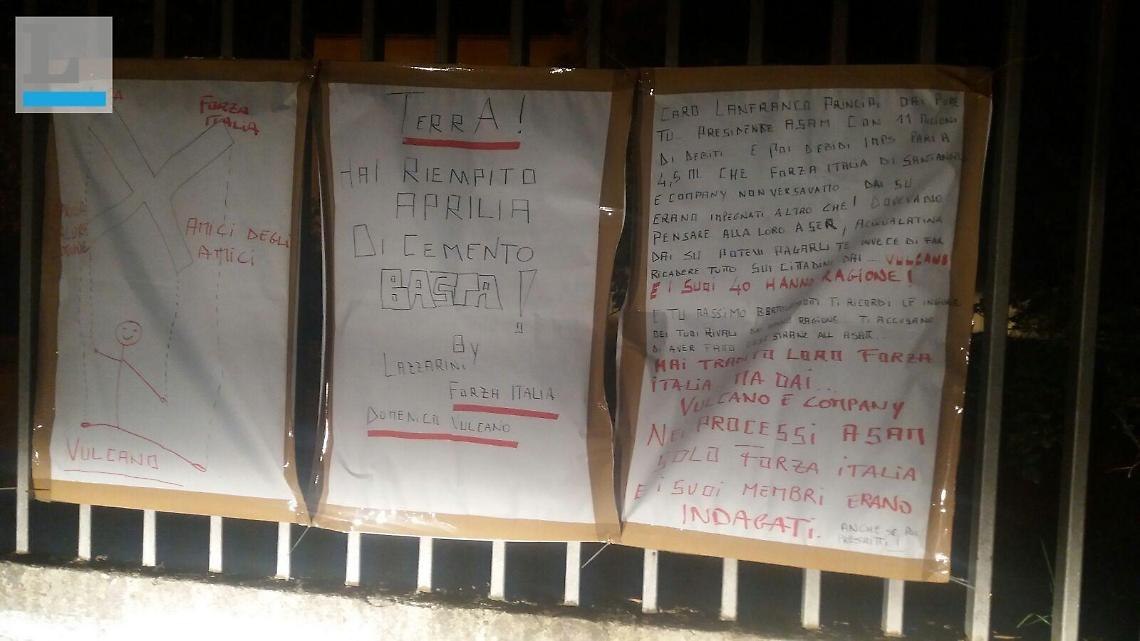 L
FORZA
ITALIA
AMICI DEGLI
AMICI
VULCANO
TERRA!
HAI RIEMPITO
APRILIA
DI CEMENTO
BASTA!
BY
LAZZARINI
FORZA ITALIA
DOMENICO VULCANO
CARO LANFRANCO PRINCIPI DAI PURE
TU... PRESIDENTE ASAM CON 11 MILIONI
DI DEBITI E POI DEBIDI IMPS PARI A
4,5 ML CHE FORZA ITALIA DI SANTANGELO
E COMPANY NON VERSAVATTO DAI SU
ERANO IMPEGNATI ALTRO CHE! DOVEVANO
PENSARE ALLA LORO ASER, ACQUALATINA
DAI SU POTEVI PAGARLI TE INVECE DI FAR
RICADERE TUTTO SUI CITTADINI DAI... VULCANO
E I SUOI 40 HANNO RAGIONE!
E TU MASSIMO TI RICORDI LE
DEI TUOI RIVALI RAGIONE... TI ACCUSANO
DI AVER FATO STRANE ALL ASAM...
HAI TRADITO LORO FORZA
ITALIA MA DAI...
VULCANO E COMPANY
NEI PROCESSI ASAM
SOLO FORZA ITALIA
E I SUOI MEMBRI ERANO
INDAGATI. ANCHE SE POI
PRESCRITTI!